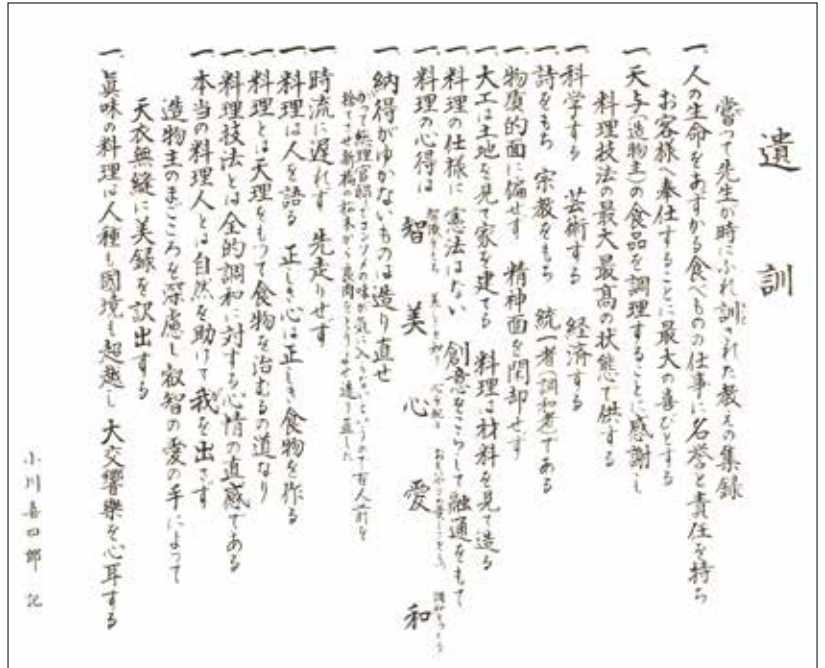 遺訓
嘗つて先生が時にふれ訓された教えの集録
一、人の生命をあずかる食べものの仕事に名誉と責任を持ち
お客様へ奉仕することに最大の喜びとする
一、天与(造物主)の食品を調理することに感謝し
料理技法の最大最高の状態で供する
一、科学する 芸術する 経済する
一、詩をもち 宗教をもち 統一者(調和者)である
一、物質的面に偏せず 精神面を閑却せず
一、大工は土地を見て家を建てる 料理は材料を見て造る
一、料理の仕様に憲法はない 創意をこらして融通をもて
一、料理の心得は 智 美 心 愛 和
一、納得がゆかないものは造り直せ
かつて総理官邸でコンソメの味が気に入らないというので百人前を
捨てさせ新橋の松本から良肉をとりよせ造り直した
一、時流に遅れず 先走りせず
一、料理は人を語る 正しき心は正しき食物を作る
一、料理とは天理をもつて食物を治むるの道なり
一、料理技法とは全的調和に対する心情の直感である
一、本当の料理人とは自然を助けて我を出さず
造物主のまごころを深慮し叡智の愛の手によって
天衣無縫に美録を訳出する
一、眞味の料理は人種も國境も超越し 大交響樂を心耳する
小川喜四郎 記